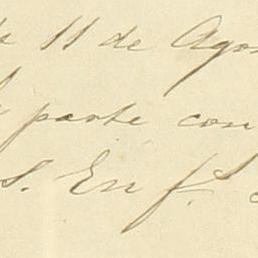 11 de Ago
parte con
S. En f.